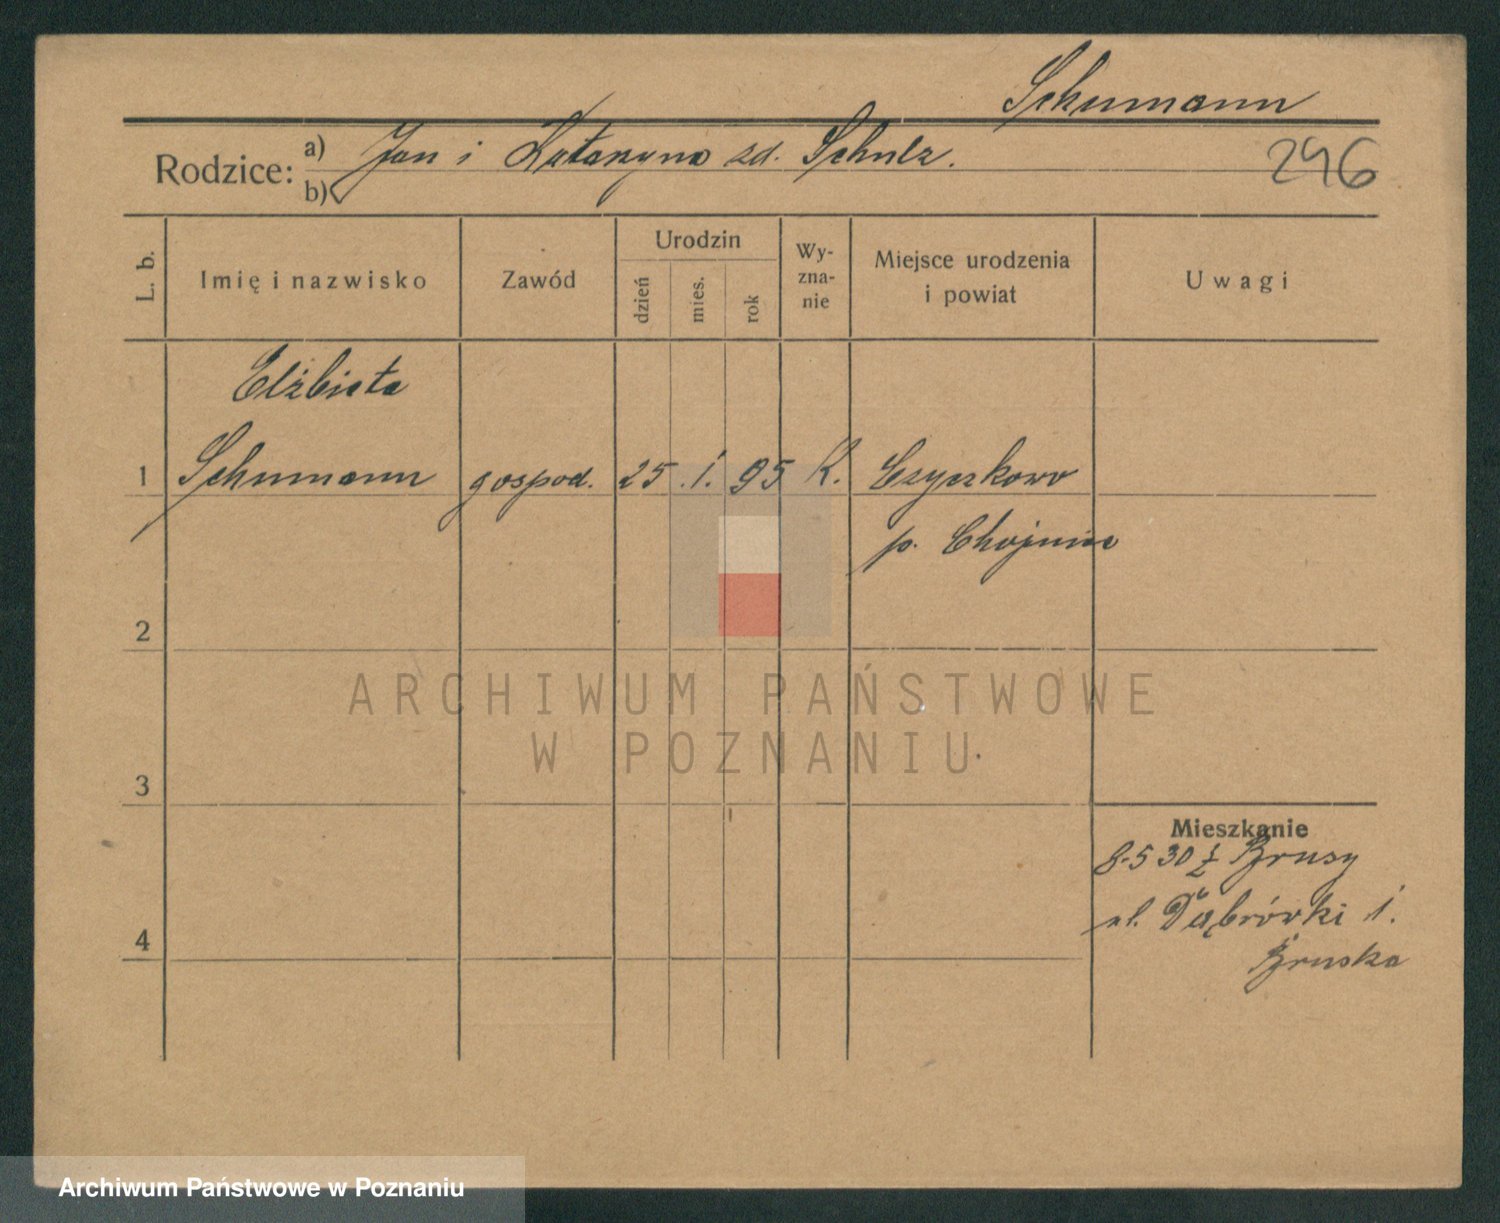 Schumann
Rodzice: a) Jan i Katarzyna zd. Schulz.
b)
296
L. b.
Imię i nazwisko
Zawód
Urodzin
dzień
mies.
rok
Wy-
zna-
nie
Miejsce urodzenia
i powiat
Uwagi
Elżbieta
1 Schumann gospod. 25 .1. 95 K. Czyczkowo
p. Chojnice
2
ARCHIWUM PAŃSTWOWE
W POZNANIU
3
Mieszkanie
8.5 30 z Brusy
ul. Dąbrówki 1.
4
Bruska
Archiwum Państwowe w Poznaniu